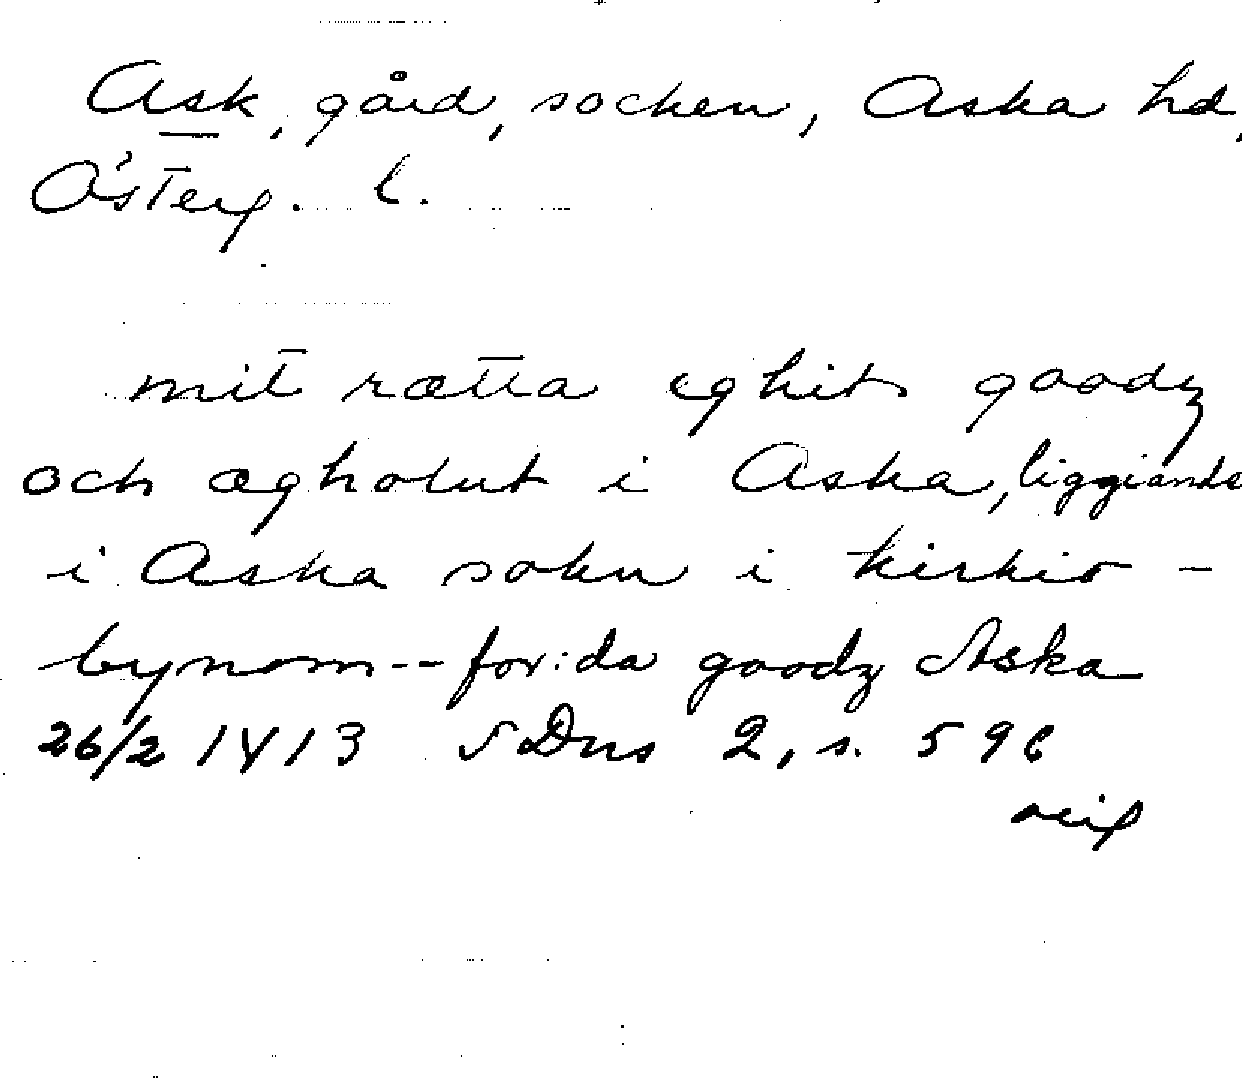 Ask, gård, socken, Aska hd,
Österg. l.
mit rætta eghit goodz
och ægholut i Aska, liggiande
i Aska sokn i kirkio-
bynom -- for:da goodz Aska
26/2 1413 SDns 2, s. 596
orig